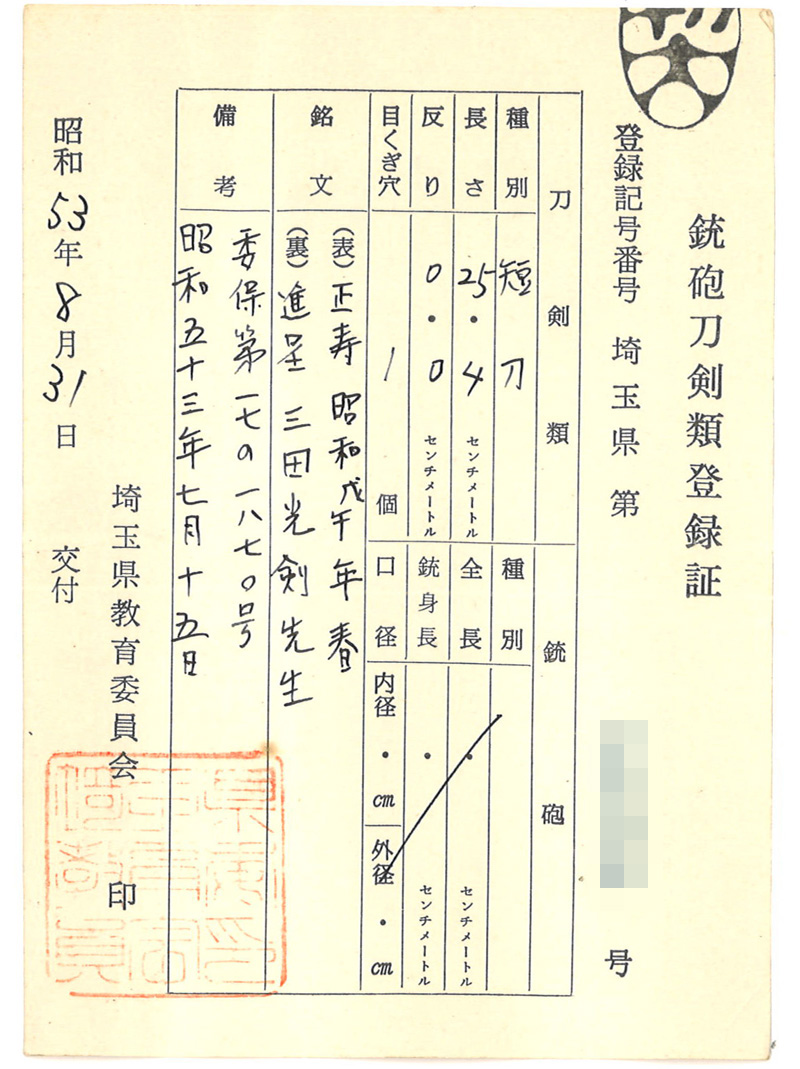 銃砲刀剣類登録証
登録記号番号 埼玉県 第 号
刀剣類
種別 短刀
長さ 25・4 センチメートル
反り 0・0 センチメートル
目くぎ穴 1個
銘文
(表) 正寿 昭和戊午年春
(裏) 進呈 三田光剣先生
備考
委保第一七の一八七〇号
昭和五十三年七月十五日
銃砲
種別
全長 ・ センチメートル
銃身長 ・ センチメートル
口径 内径 ・ cm 外径 ・ cm
昭和53年8月31日 交付
埼玉県教育委員会 印